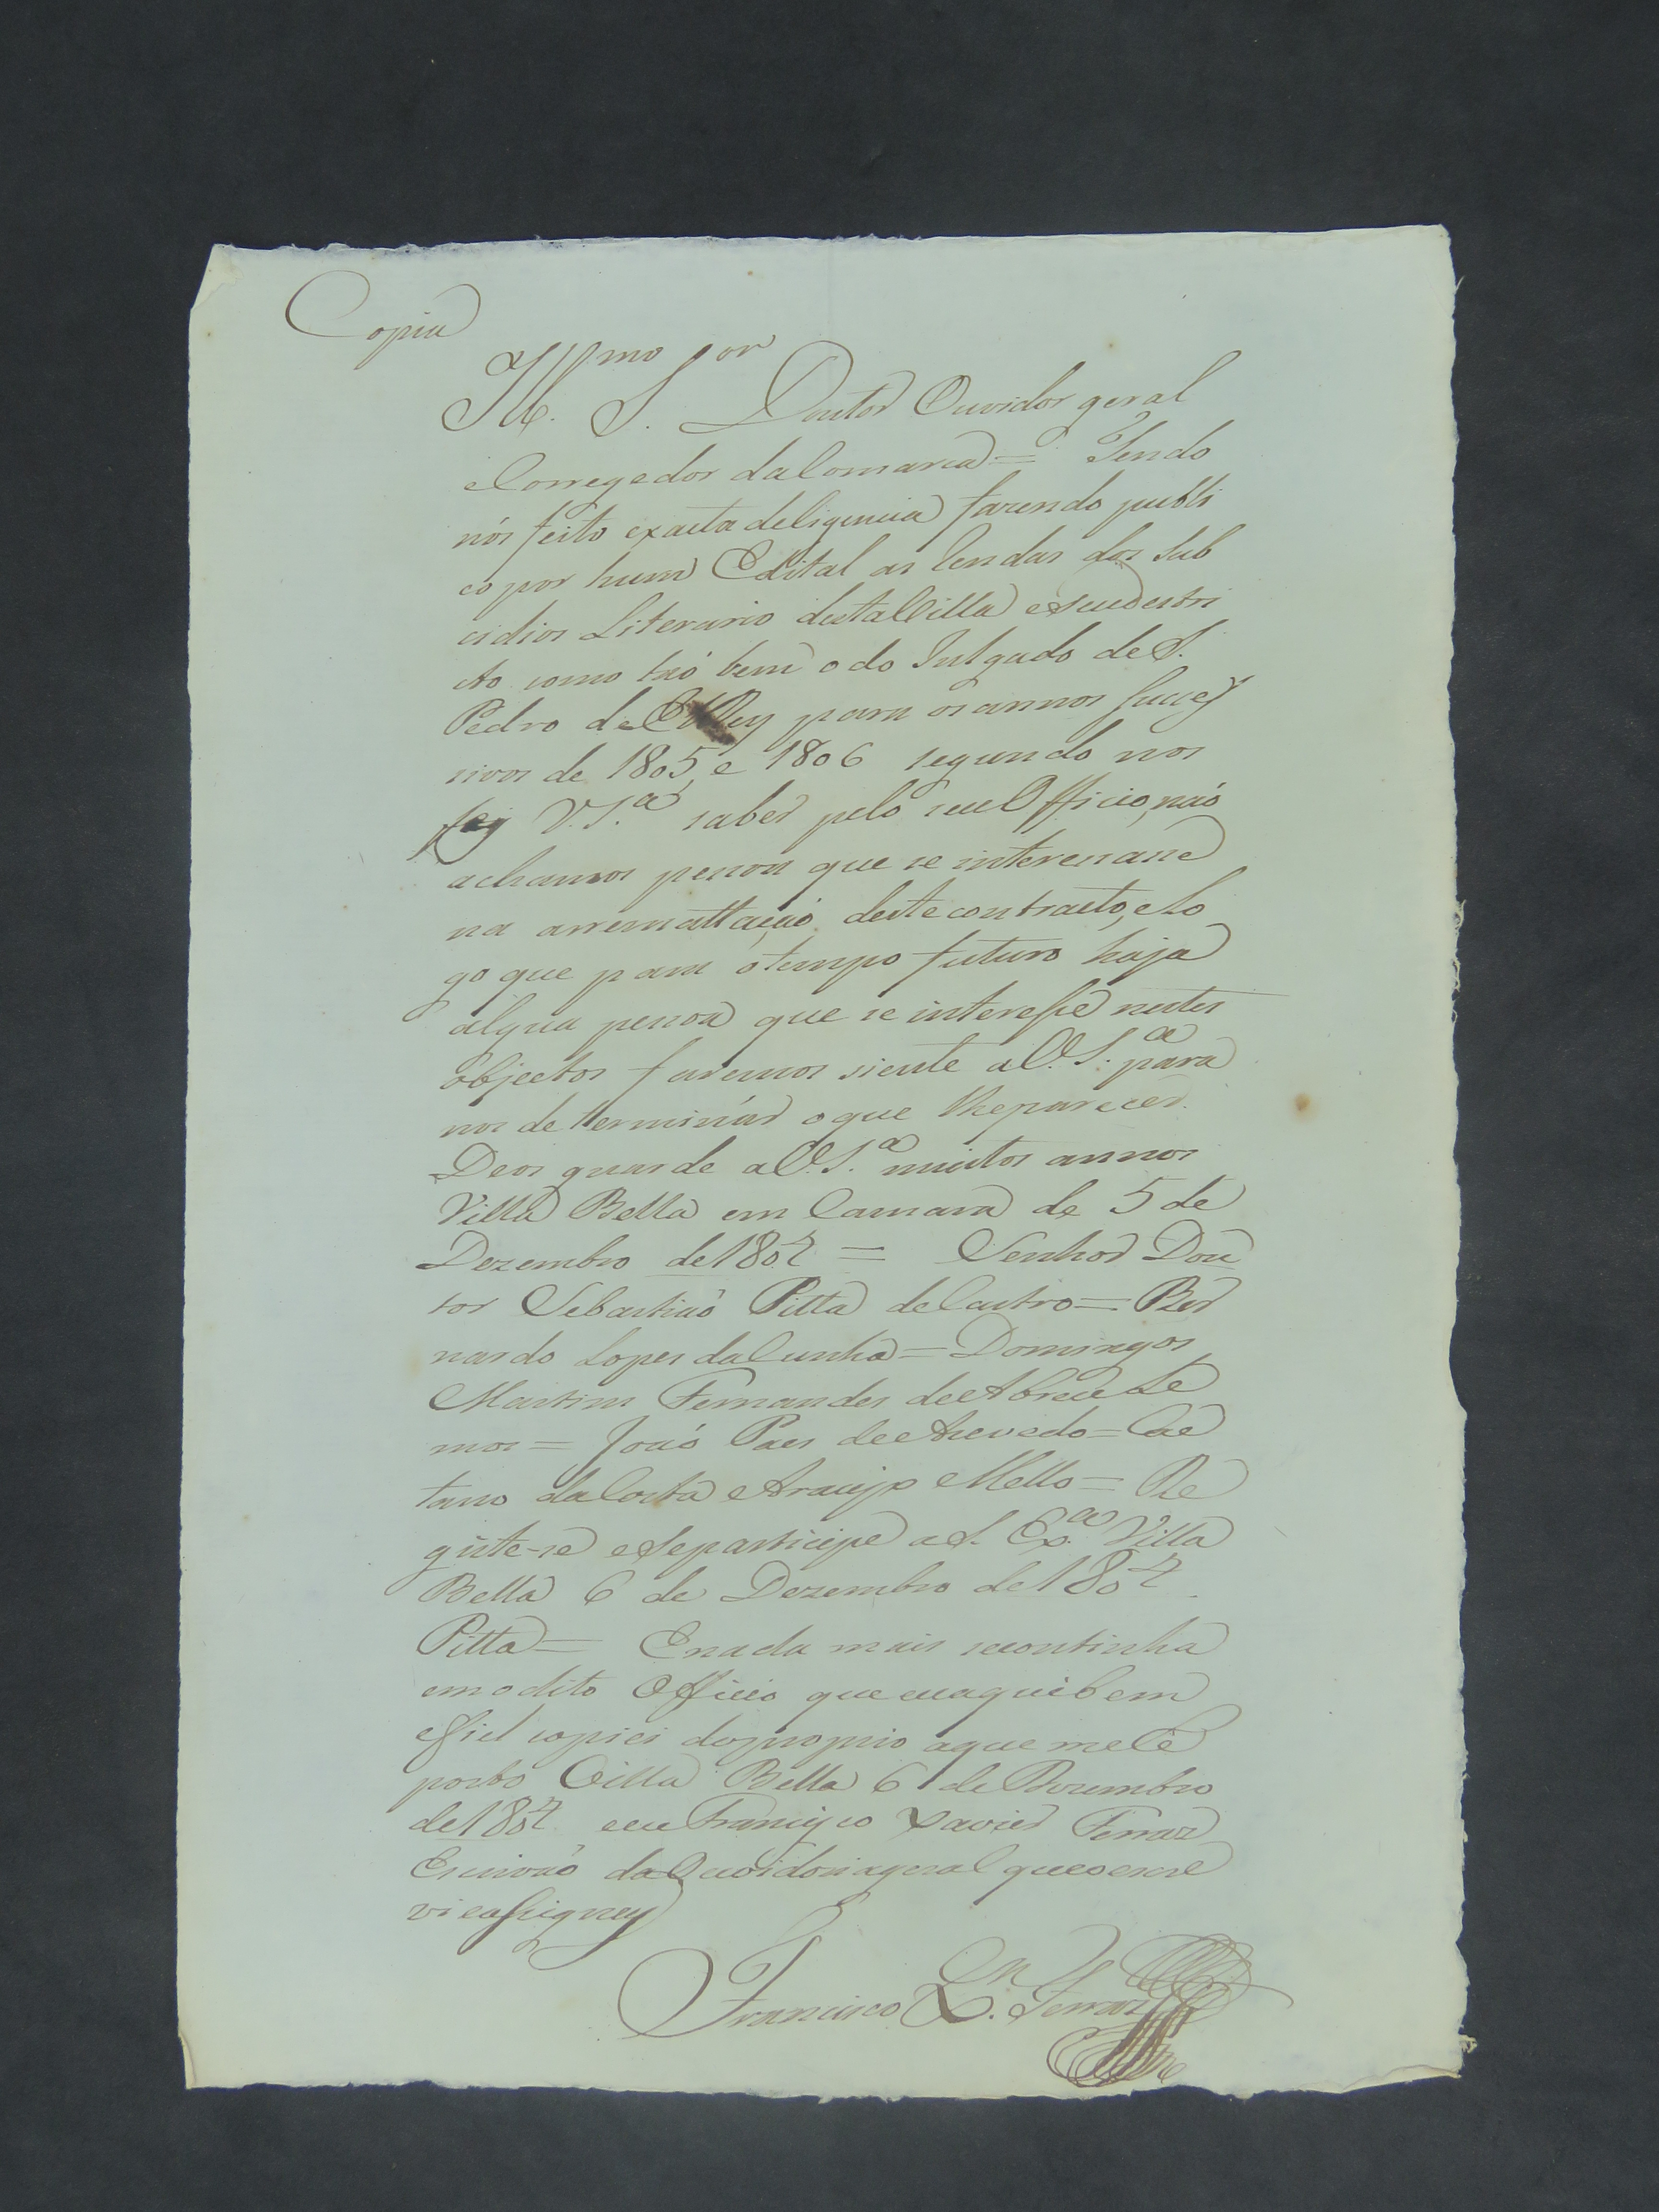 Copia
Ill.mo S.or Doutor Ouvidor geral
e Corregedor da Comarca = Tendo
nós feito exacta deligencia fazendo publi
co por hum Edital as Rendas dos Sub
cidios Literario desta Villa e seu destri
cto como tão bem o do Julgado de S.
Pedro de ElRey para os annos succes
sivos de 1805, e 1806 segundo nos
fes V. S.a saber pelo seu Officio, não
achamos pessoa que se interessasse
na arremattação deste contracto, e lo
go que para o tempo futuro haja
algua pessoa que se interesse nestes
objectos faremos siente a V. S.a para
nos determinar o que lhe parecer.
Deos guarde a V. S.a muitos annos
Villa Bella em Camara de 5 de
Dezembro de 1804 = Senhor Dou
tor Sebastião Pitta de Castro = Ber
nardo Lopes da Cunha = Domingos
Martins Fernandes de Abreu Le
mos = João Paes de Azevedo = Cae
tano da Costa Araujo e Mello = Re
giste-se e se participe a S. Ex.a Villa
Bella 6 de Dezembro de 1804
Pitta = E nada mais se continha
em o dito Officio que eu aqui bem
e fiel copiei do proprio a que me re
porto Villa Bella 6 de Dezembro
de 1804 eu Francisco Xavier Ferraz
Escrivão da Ouvidoria geral que o escre
vi e assigney
Francisco X.er Ferraz